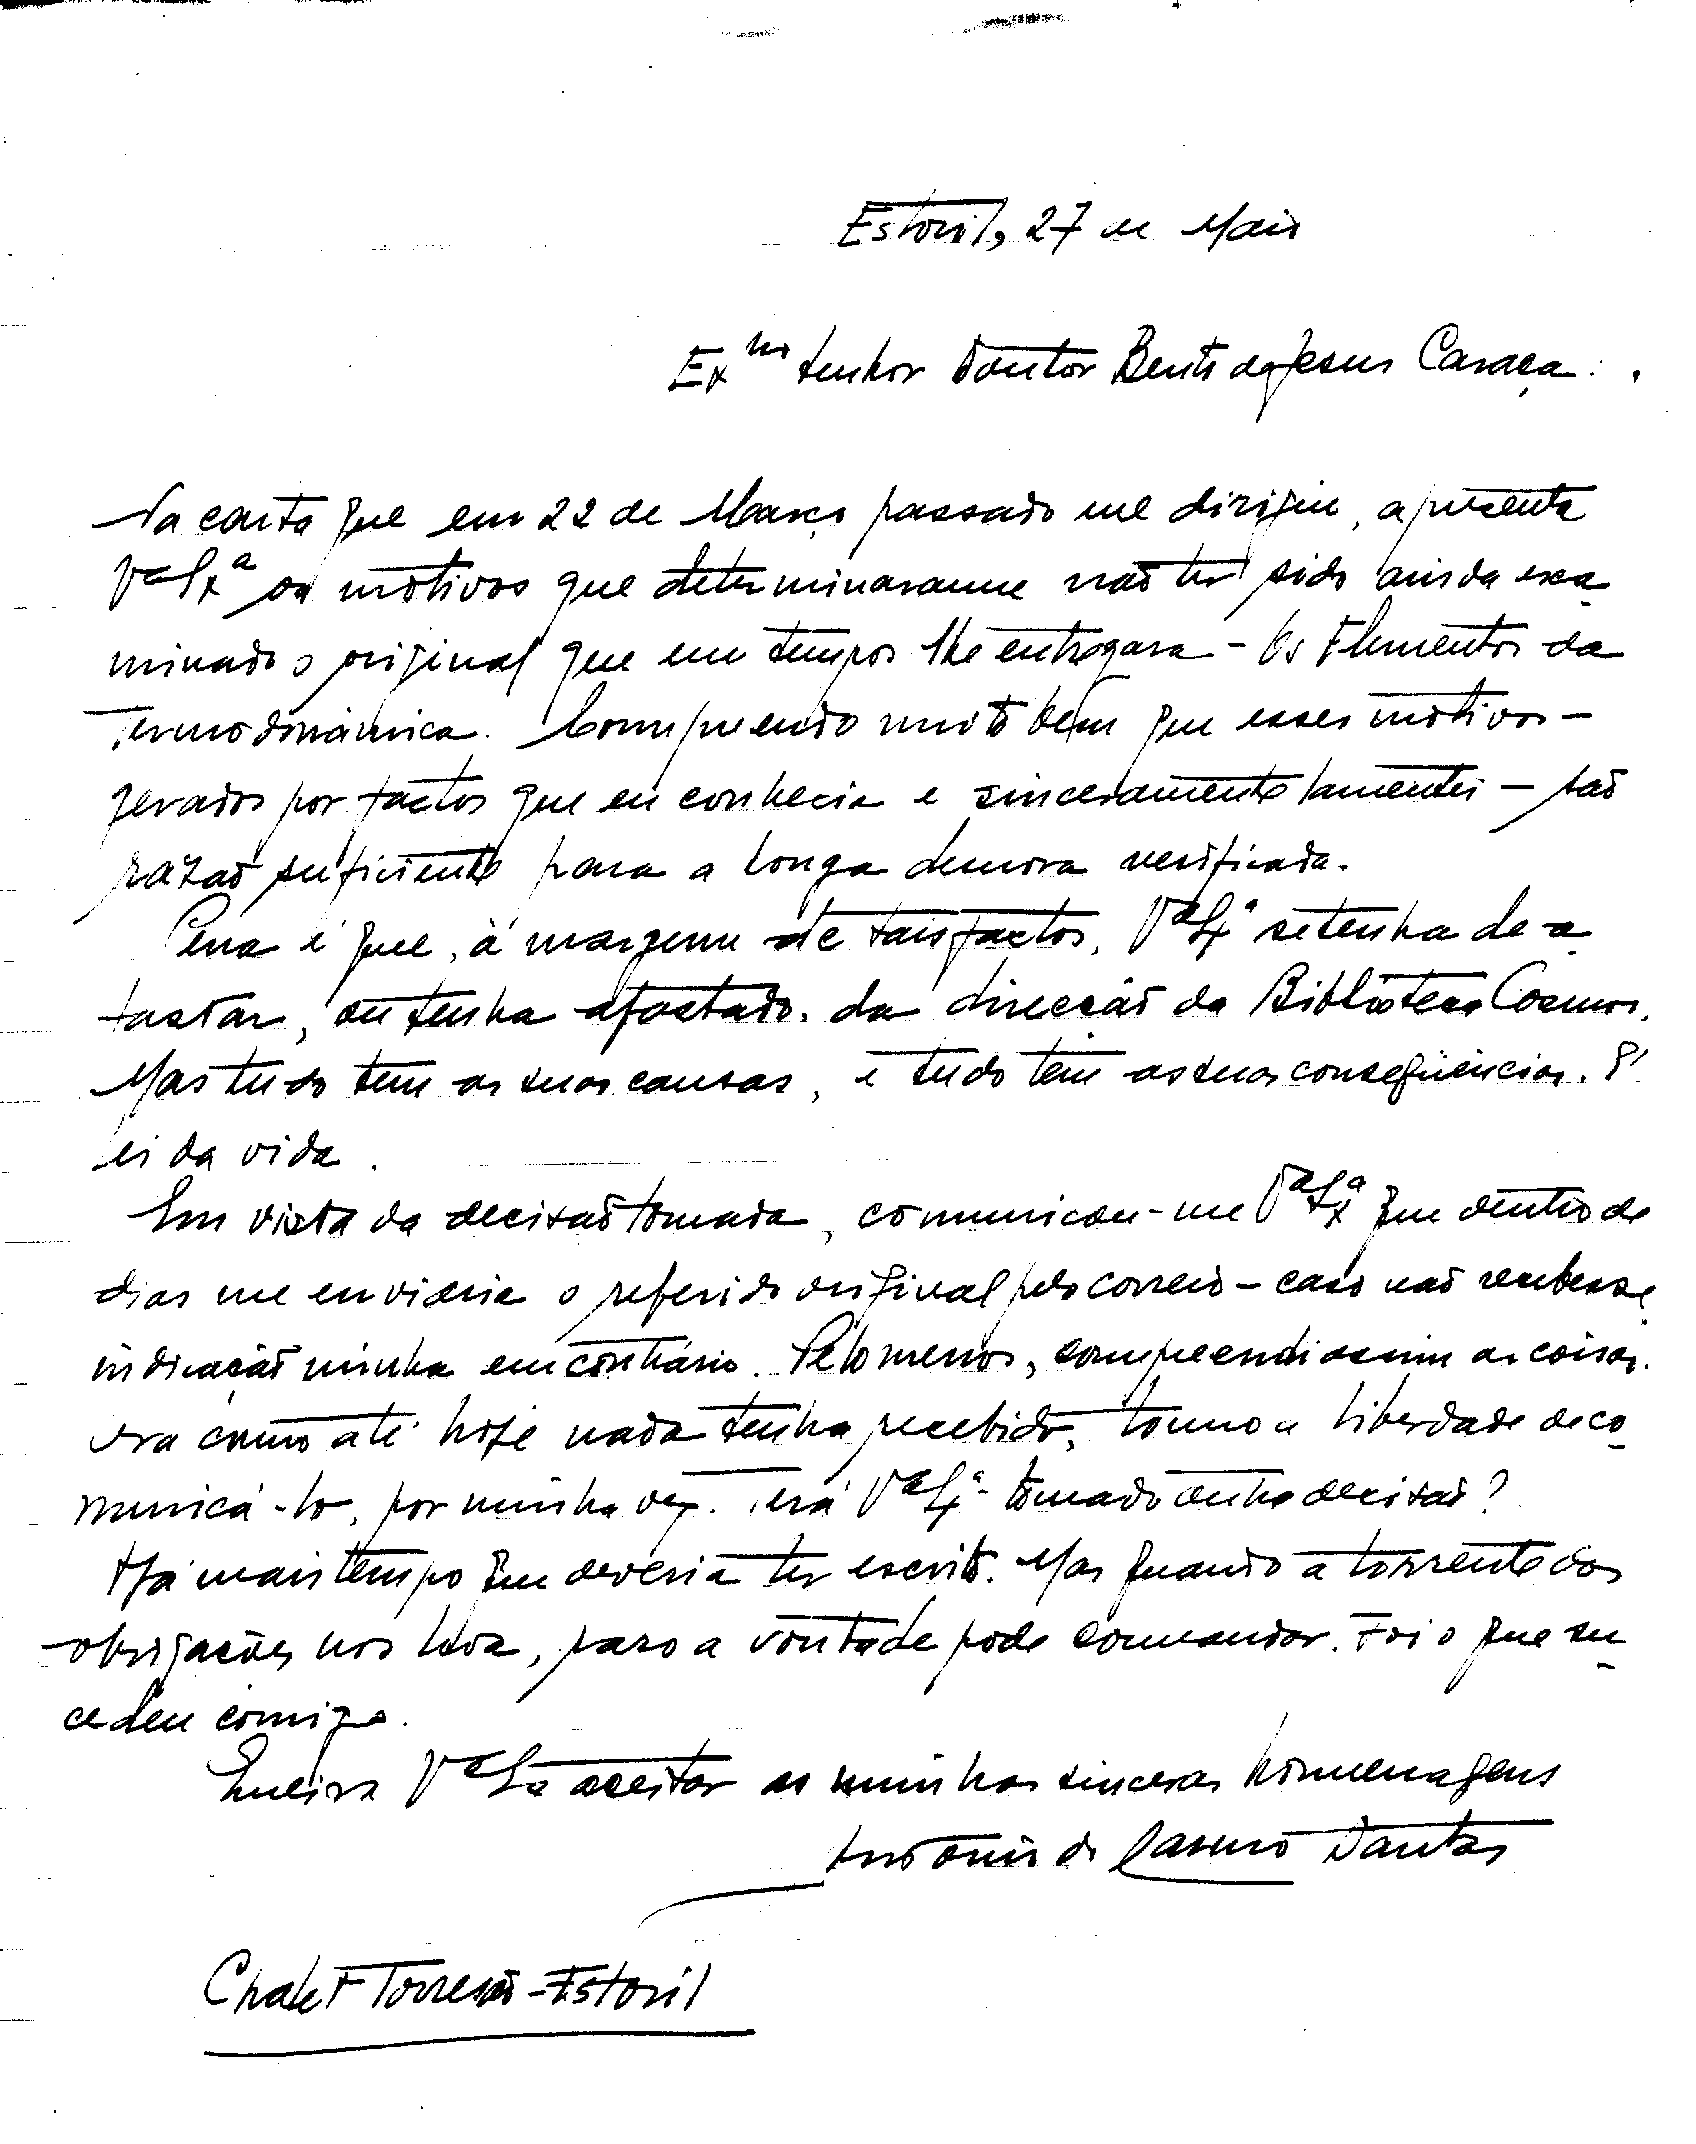 Estoril, 27 de Maio
Exmo Senhor Doutor Bento de Jesus Caraça:
Na carta que em 22 de Março passado me dirigiu, apresenta
Va Exa os motivos que determinaram não ter sido ainda exa-
minado o original que em tempos lhe entregara - Os Elementos da
Termodinâmica. Compreendo muito bem que esses motivos -
gerados por factos que eu conhecia e sinceramente lamentei - são
razão suficiente para a longa demora verificada.
Pena é que, à margem de tais factos, Va Exa se tenha de a-
fastar, ou tenha afastado, da direcção da Biblioteca Cosmos.
Mas tudo tem as suas causas, e tudo tem as suas conseqüências. É
lei da vida.
Em vista da decisão tomada, comunicou-me Va Exa que dentro de
dias me enviaria o referido original pelo correio - caso não recebesse
indicação minha em contrário. Pelo menos, compreendi assim as coisas.
Ora como até hoje nada tenha recebido, tomo a liberdade de co-
municá-lo, por minha vez. Terá Va Exa tomado outra decisão?
Há mais tempo que deveria ter escrito. Mas quando a torrente das
obrigações nos leva, raro a vontade pode comandar. Foi o que su-
cedeu comigo.
Queira Va Exa aceitar as minhas sinceras homenagens
António de Dantas
Chalet Torreão - Estoril